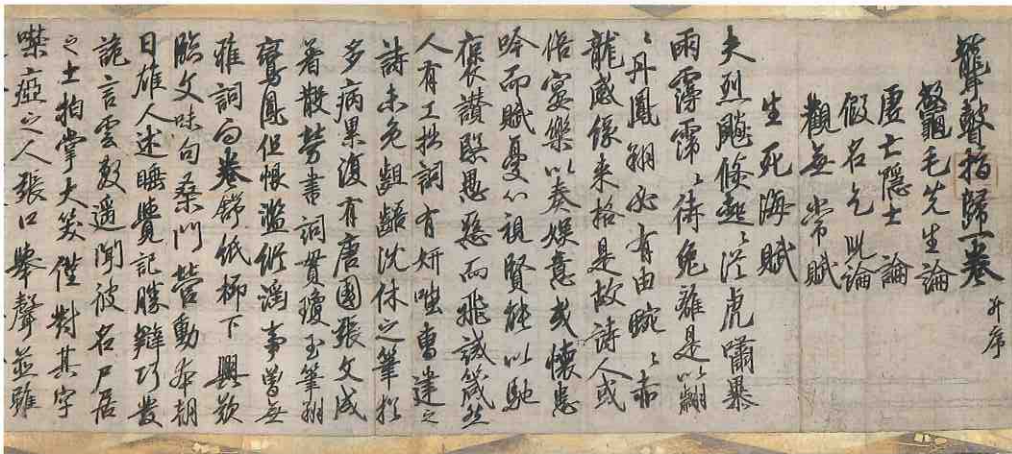 聾瞽指歸一卷 并序
鼈毛先生論
虛亡隱士論
假名乞兒論
觀無常賦
生死海賦
夫烈飈倏起、從虎嘯暴
雨霶霈、待兔離是以翩
、丹鳳翔必有由蜿、赤
龍感緣来格是故詩人或
倍宴樂以奏娛意或懷患
吟而賦憂心視賢能以馳
褒讚愚惡而飛誡箴然
人有工拙詞有妍嗤曹建之
詩未免齟齬沈休之筆猶
多病累復有唐國張文成
著散勞書詞貫瓊玉筆翔
鸞鳳但恨濫縱淫事曽無
雅詞面卷舒紙柳下興歎
臨文味句桑門營動本朝
日雄人述睡覺記勝辨巧發
詭言雲敷遥聞彼名尸居
之士拍掌大笑僅對其字
噤瘂之人張口舉聲並雖